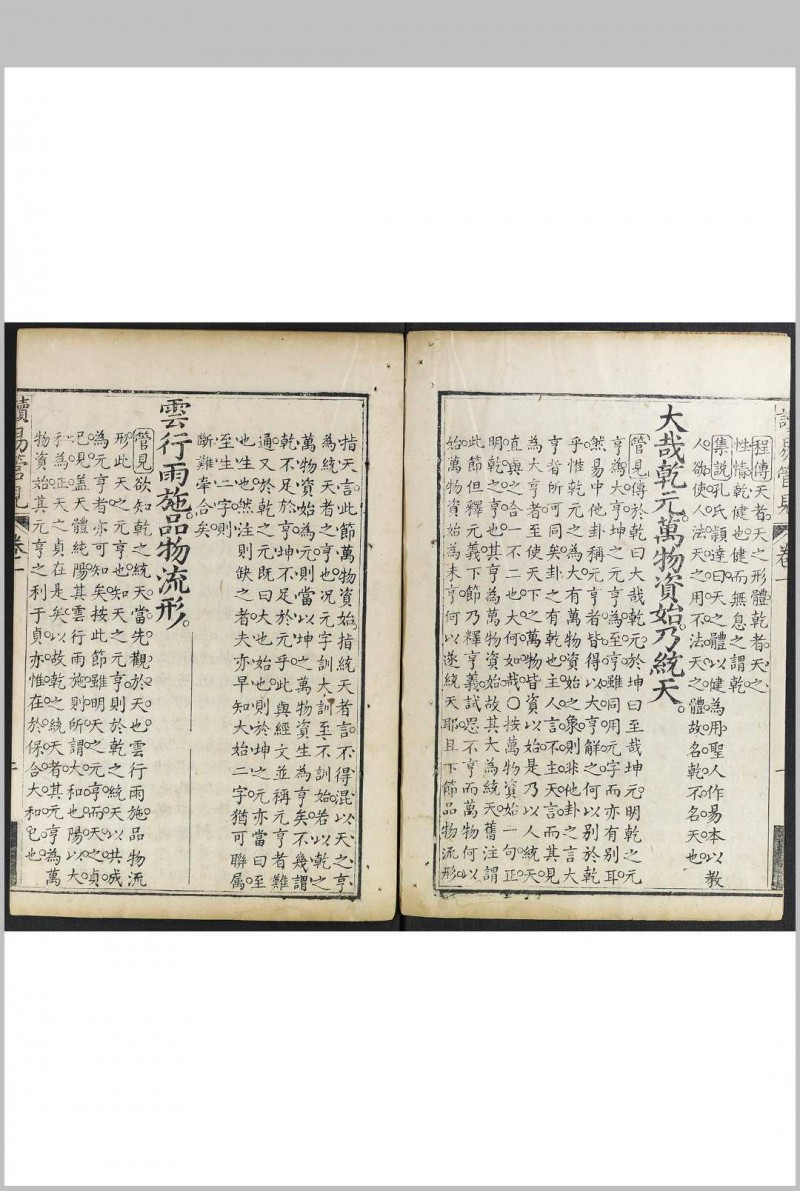 讀易管見 卷一
程傳天者天之形體乾者天之
性情乾健也健而無息之謂乾
集說孔氏穎達曰天之體以健為用聖人作易本以教
人欲使人法天之用不法天之體故名乾不名天也
大哉乾元萬物資始乃統天
管見傳於乾曰大哉乾元於坤曰至哉坤元明乾之元
亨為大亨坤之元亨為至亨雖同用元字而亦有別耳
然易中他卦稱元亨者皆得以大亨解之何以別於乾
乎惟乾元之為大有萬物資始之象則非他卦之言大
亨者所可同矣卦之有乾也主人言不主天言而其見
為大亨者至使天下之萬物皆資以始是乃以人統天
直與之合一不二也大何如哉○按萬物資始一句正
明乾之大亨也其亨為萬物資始故其大為統天舊注謂
此節但釋元義下節乃釋亨義試思不亨而萬物何以
始萬物資始為未亨何以遂統天耶且下節品物流形
指天言此節萬物資始指統天者言不得混以天之亨
為統天者之亨也况元字訓大訓至不訓始若以乾之
萬物資始為元則當以坤之萬物資生為亨矣不幾謂
乾不足於亨坤不足於元乎此與經文並稱元亨者難
通又於乾之元既曰大也始也則於坤之元亦當曰至
也生也然注則缺之者夫亦早知大始二字猶可聯屬
至生二字則
斷難牽合矣
雲行雨施品物流形
管見欲知乾之統天當先觀於天也雲行雨施品物流
形此天之元亨也知天之元亨則於乾之統天以共成
為元亨者亦可知矣按此節雖明天之元亨而天之貞
已見蓋天體純陽其雲行雨施則所謂大和也陽以大
和為正天之貞在是矣以故乾之統天者其元亨為萬
物資始其元亨之利于貞亦惟在於保合大和已也
讀易管見 卷一 二